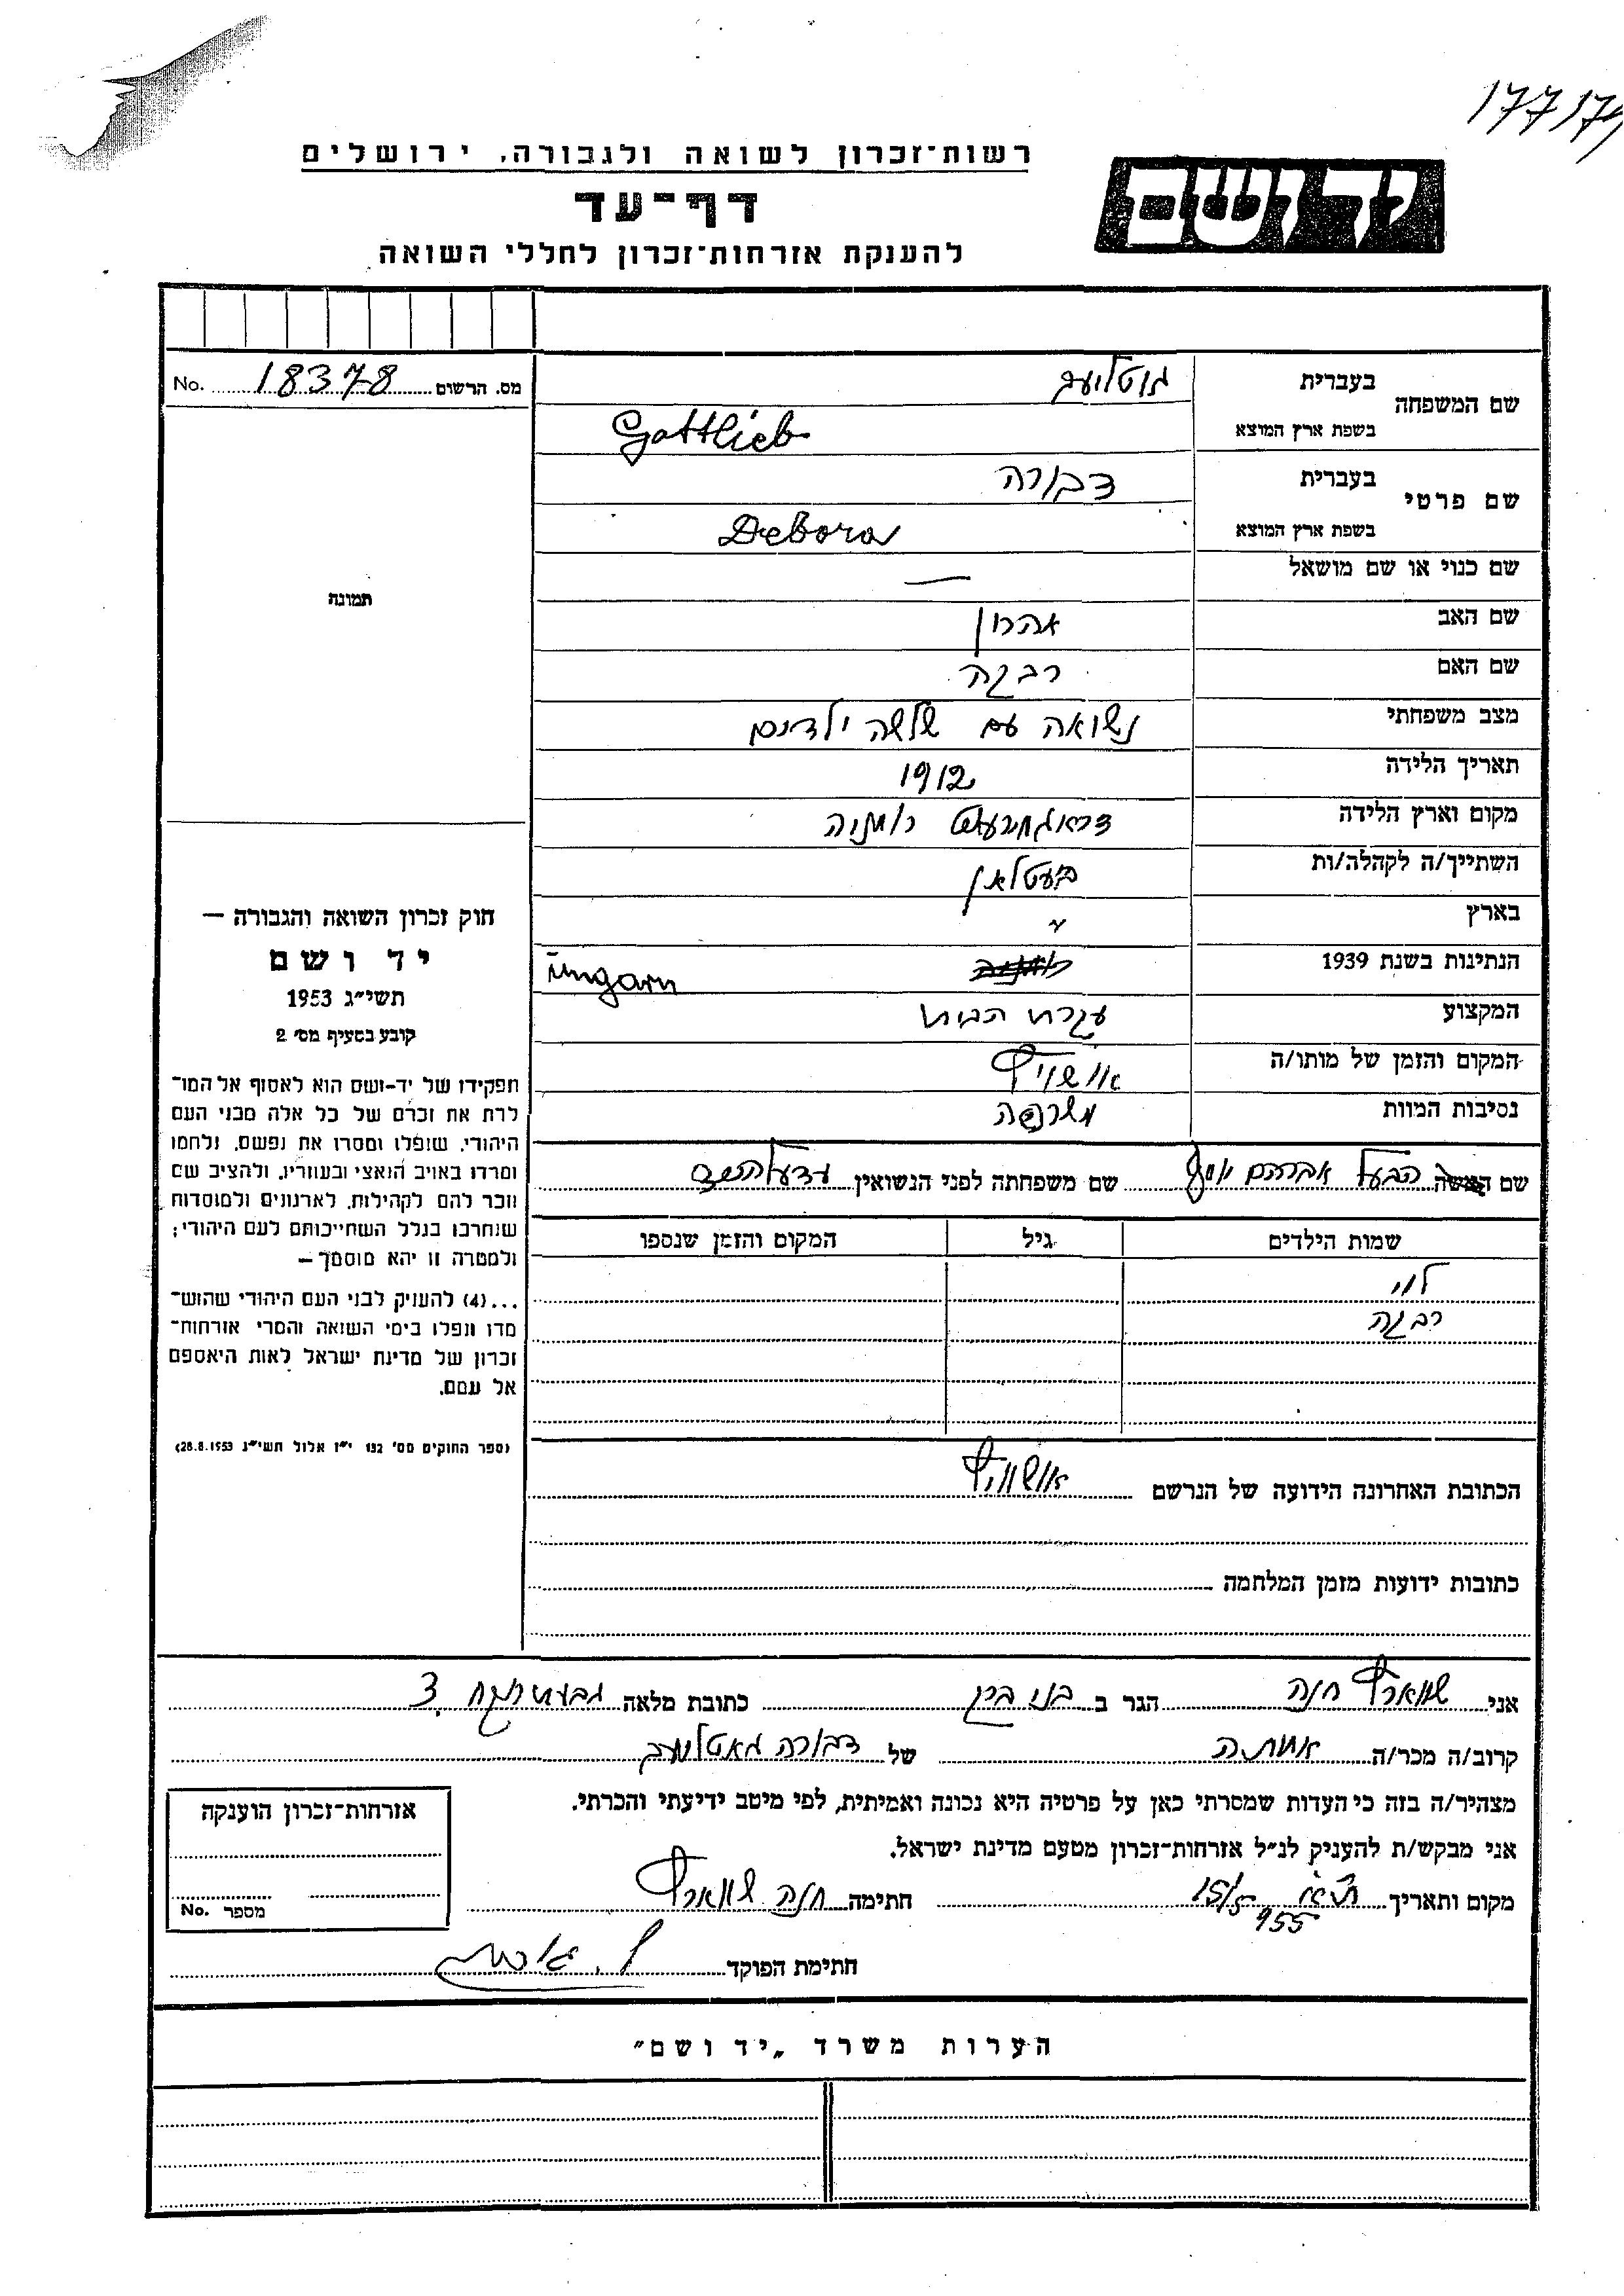 177174
רשות־זכרון לשואה ולגבורה, ירושלים
יד ושם
דף־עד
להענקת אזרחות־זכרון לחללי השואה
מס. הרשום 18378 No.
שם המשפחה
בעברית גוטליעב
בשפת ארץ המוצא Gottlieb
שם פרטי
בעברית דבורה
בשפת ארץ המוצא Debora
תמונה
שם כנוי או שם מושאל —
שם האב אהרון
שם האם רבקה
מצב משפחתי נשואה עם שלשה ילדים
תאריך הלידה 1912
מקום וארץ הלידה רומניה
השתייך/ה לקהלה/ות בעטלאן
בארץ "
הנתינות בשנת 1939 רומניה Ungarn
המקצוע עקרת הבית
המקום והזמן של מותו/ה אושוויץ
נסיבות המוות משרפה
שם האשה הבעל אברהם יוסף שם משפחתה לפני הנשואין
שמות הילדים גיל המקום והזמן שנספו
לוי
רבקה
הכתובת האחרונה הידועה של הנרשם אושוויץ
כתובות ידועות מזמן המלחמה
חוק זכרון השואה והגבורה —
יד ושם
תשי״ג 1953
קובע בסעיף מס׳ 2
תפקידו של יד-ושם הוא לאסוף אל המו־
לדת את זכרם של כל אלה מבני העם
היהודי, שנפלו ומסרו את נפשם, נלחמו
ומרדו באויב הנאצי ובעוזריו, ולהציב שם
וזכר להם לקהילות, לארגונים ולמוסדות
שנחרבו בגלל השתייכותם לעם היהודי;
ולמטרה זו יהא מוסמך —
...(4) להעניק לבני העם היהודי שהוש־
מדו ונפלו בימי השואה והמרי אזרחות־
זכרון של מדינת ישראל לאות היאספם
אל עמם.
(ספר החוקים מס׳ 132 י״ז אלול תשי״ג 28.8.1953)
אני שווארץ חנה הגר ב בני ברק כתובת מלאה 3
קרוב/ה מכר/ה אחותה של דבורה גאטליעב
מצהיר/ה בזה כי העדות שמסרתי כאן על פרטיה היא נכונה ואמיתית, לפי מיטב ידיעתי והכרתי.
אני מבקש/ת להעניק לנ״ל אזרחות־זכרון מטעם מדינת ישראל.
מקום ותאריך ת״א 15/5 955 חתימה חנה שווארץ
חתימת הפוקד
אזרחות־זכרון הוענקה
מספר No.
הערות משרד „יד ושם״